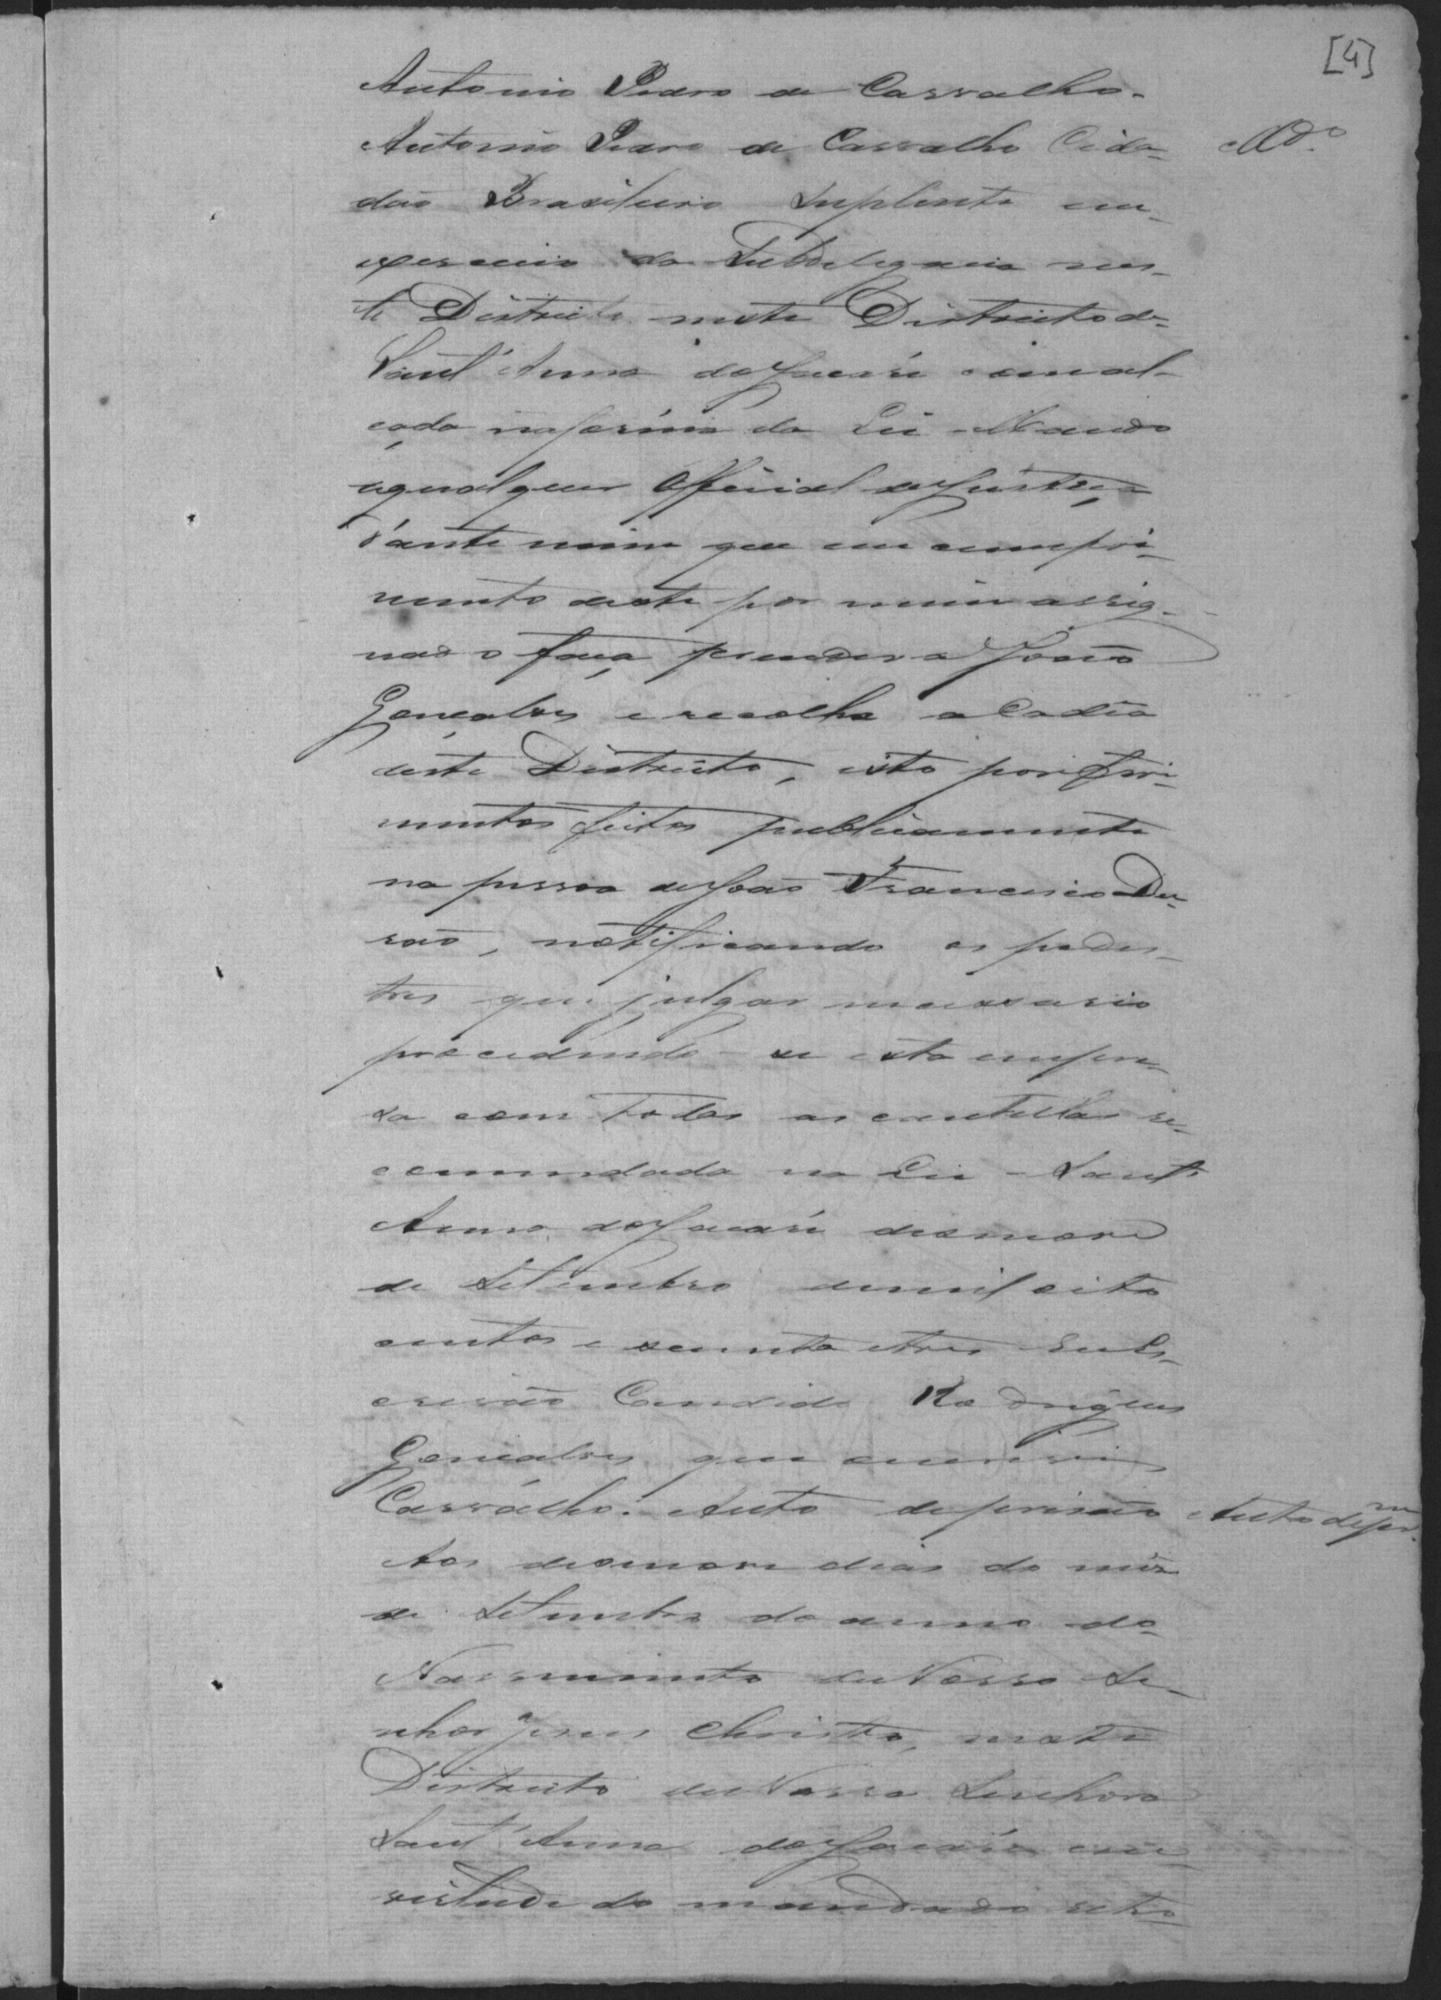 [4]
Antonio Pedro de Carvalho.
Antonio Pedro de Carvalho Cida-
Mdo.
dão Brasileiro Suplente em
exercicio da Subdelegacia nes-
te Districto neste Districto de
Sant'Anna do Jacaré com al-
çada na forma da Lei - Mando
a qualquer Official de Justiça
d'ante mim que em cumpri-
mento deste por mim assig-
nado faça prender a João
Gonçalves e recolha a Cadea
deste Districto, isto por feri-
mentos feitos publicamente
na pessoa de João Francisco Du-
rão, notificando os pedes-
tres que julgar necessario
procedendo-se esta empre-
sa com todas as cautellas re-
commendada na Lei - Sant'
Anna do Jacaré desenove
de Setembro de mil oito
centos e secenta e tres Eu Es-
crivão Candido Rodrigues
Gonçalves que escrevi
Carvalho. Auto de prisão
Auto de pr.
Aos desenove dias do mês
de Setembro do anno do
Nascimento de Nosso Se-
nhor Jesus Christo, neste
Districto de Nossa Senhora
Sant'Anna do Jacaré em
virtude do mandado retro